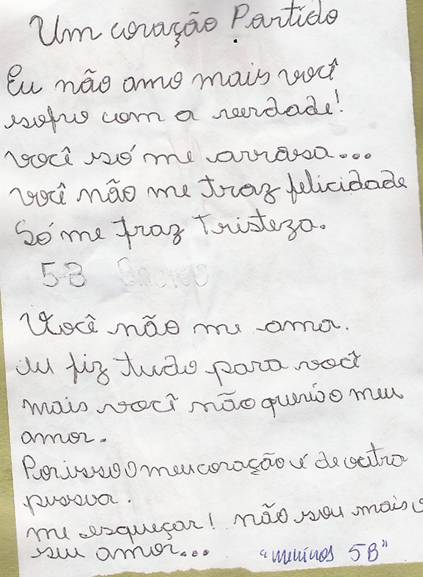 Um coração Partido
Eu não amo mais você
sofro com a verdade!
você só me arrasa...
você não me traz felicidade
Só me traz Tristeza.
5B
Você não me ama.
eu fiz tudo para você
mais você não queria o meu
amor.
Por isso o meu coração é de outra
pessoa.
me esqueçar! não sou mais o
seu amor... "meninos 5B"